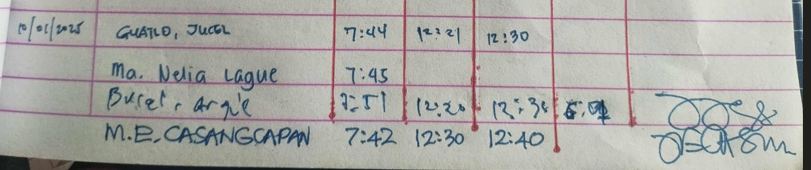 10/01/2025 GUATLO, JUCEL 7:44 12:21 12:30
Ma. Nelia Lague 7:45
Buset, Argie 7:51 12:20 12:30
M.E. CASANGCAPAN 7:42 12:30 12:40